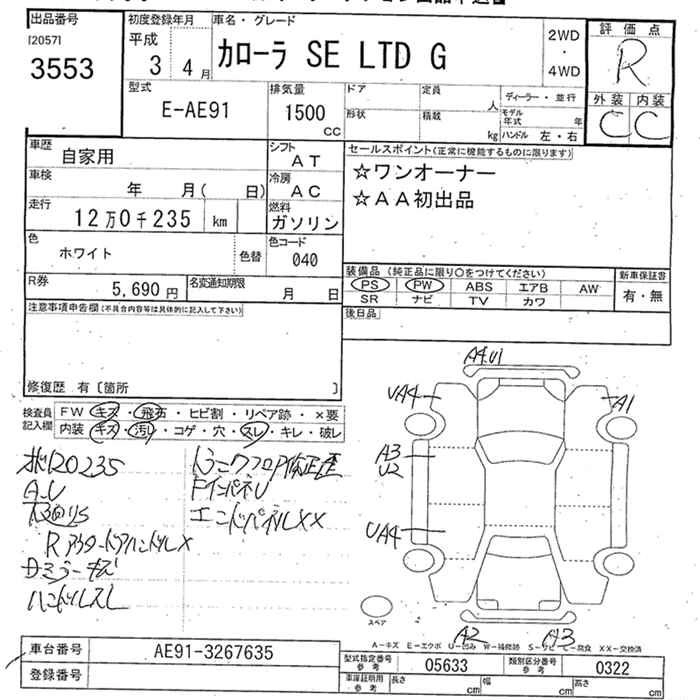 出品番号
[2057]
3553
初度登録年月
平成
3 4 月
車名・グレード
カローラ SE LTD G
2WD
・
4WD
評価点
R
外装 内装
C C
型式
E-AE91
排気量
1500
CC
ドア
形状
定員
人
積載
kg
ディーラー・並行
モデル年式 年
ハンドル 左・右
車歴
自家用
シフト
AT
車検
年 月( 日)
冷房
AC
走行
12万0千235 km
燃料
ガソリン
色
ホワイト
色替
色コード
040
R券
5,690 円
名変通知期限
月 日
セールスポイント(正常に機能するものに限ります)
☆ワンオーナー
☆AA初出品
装備品 (純正品に限り○をつけてください)
PS PW ABS エアB AW
SR ナビ TV カワ
新車保証書
有・無
後日品
注意事項申告欄(不具合内容等は具体的に記入して下さい)
修復歴 有〔箇所 〕
検査員
記入欄
FW キズ・飛石・ヒビ割・リペア跡・×要
内装 キズ・汚れ・コゲ・穴・スレ・キレ・破レ
120235
A.U
RアウタードアハンドルX
ミラーキズ
ハンドルスレ
トランクフロア修正歪
FインパネU
エンドパネルXX
A4.U1
UA4
A1
A3
U2
UA4
A2
A3
スペア
A-キズ E-エクボ U-凹み W-補修跡 S-サビ C-腐食 XX-交換済
車台番号
AE91-3267635
登録番号
型式指定番号
参考
05633
類別区分番号
参考
0322
車庫証明用
参考
長さ cm
幅 cm
高さ cm